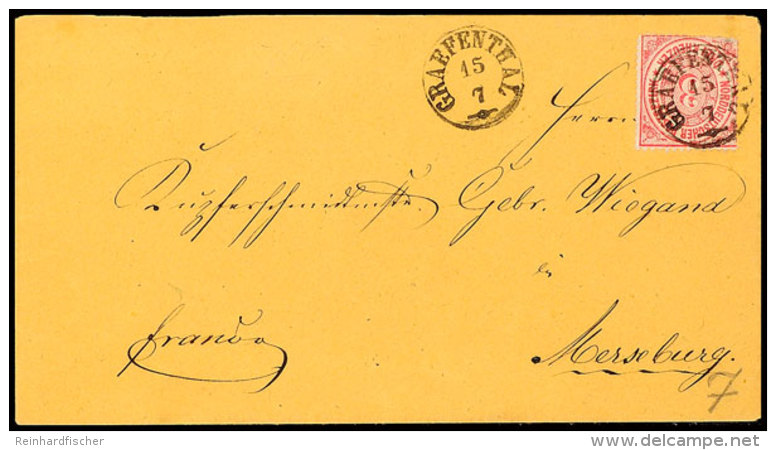 GRAEFENTHAL
15
7
GRAEFENTHAL
15
7
NORDDEUTSCHER
3
Herrn
Kupferschmidtmstr. Gebr. Wiegand
in
Merseburg.
franco
7
Reinhardfischer
delcampe.net